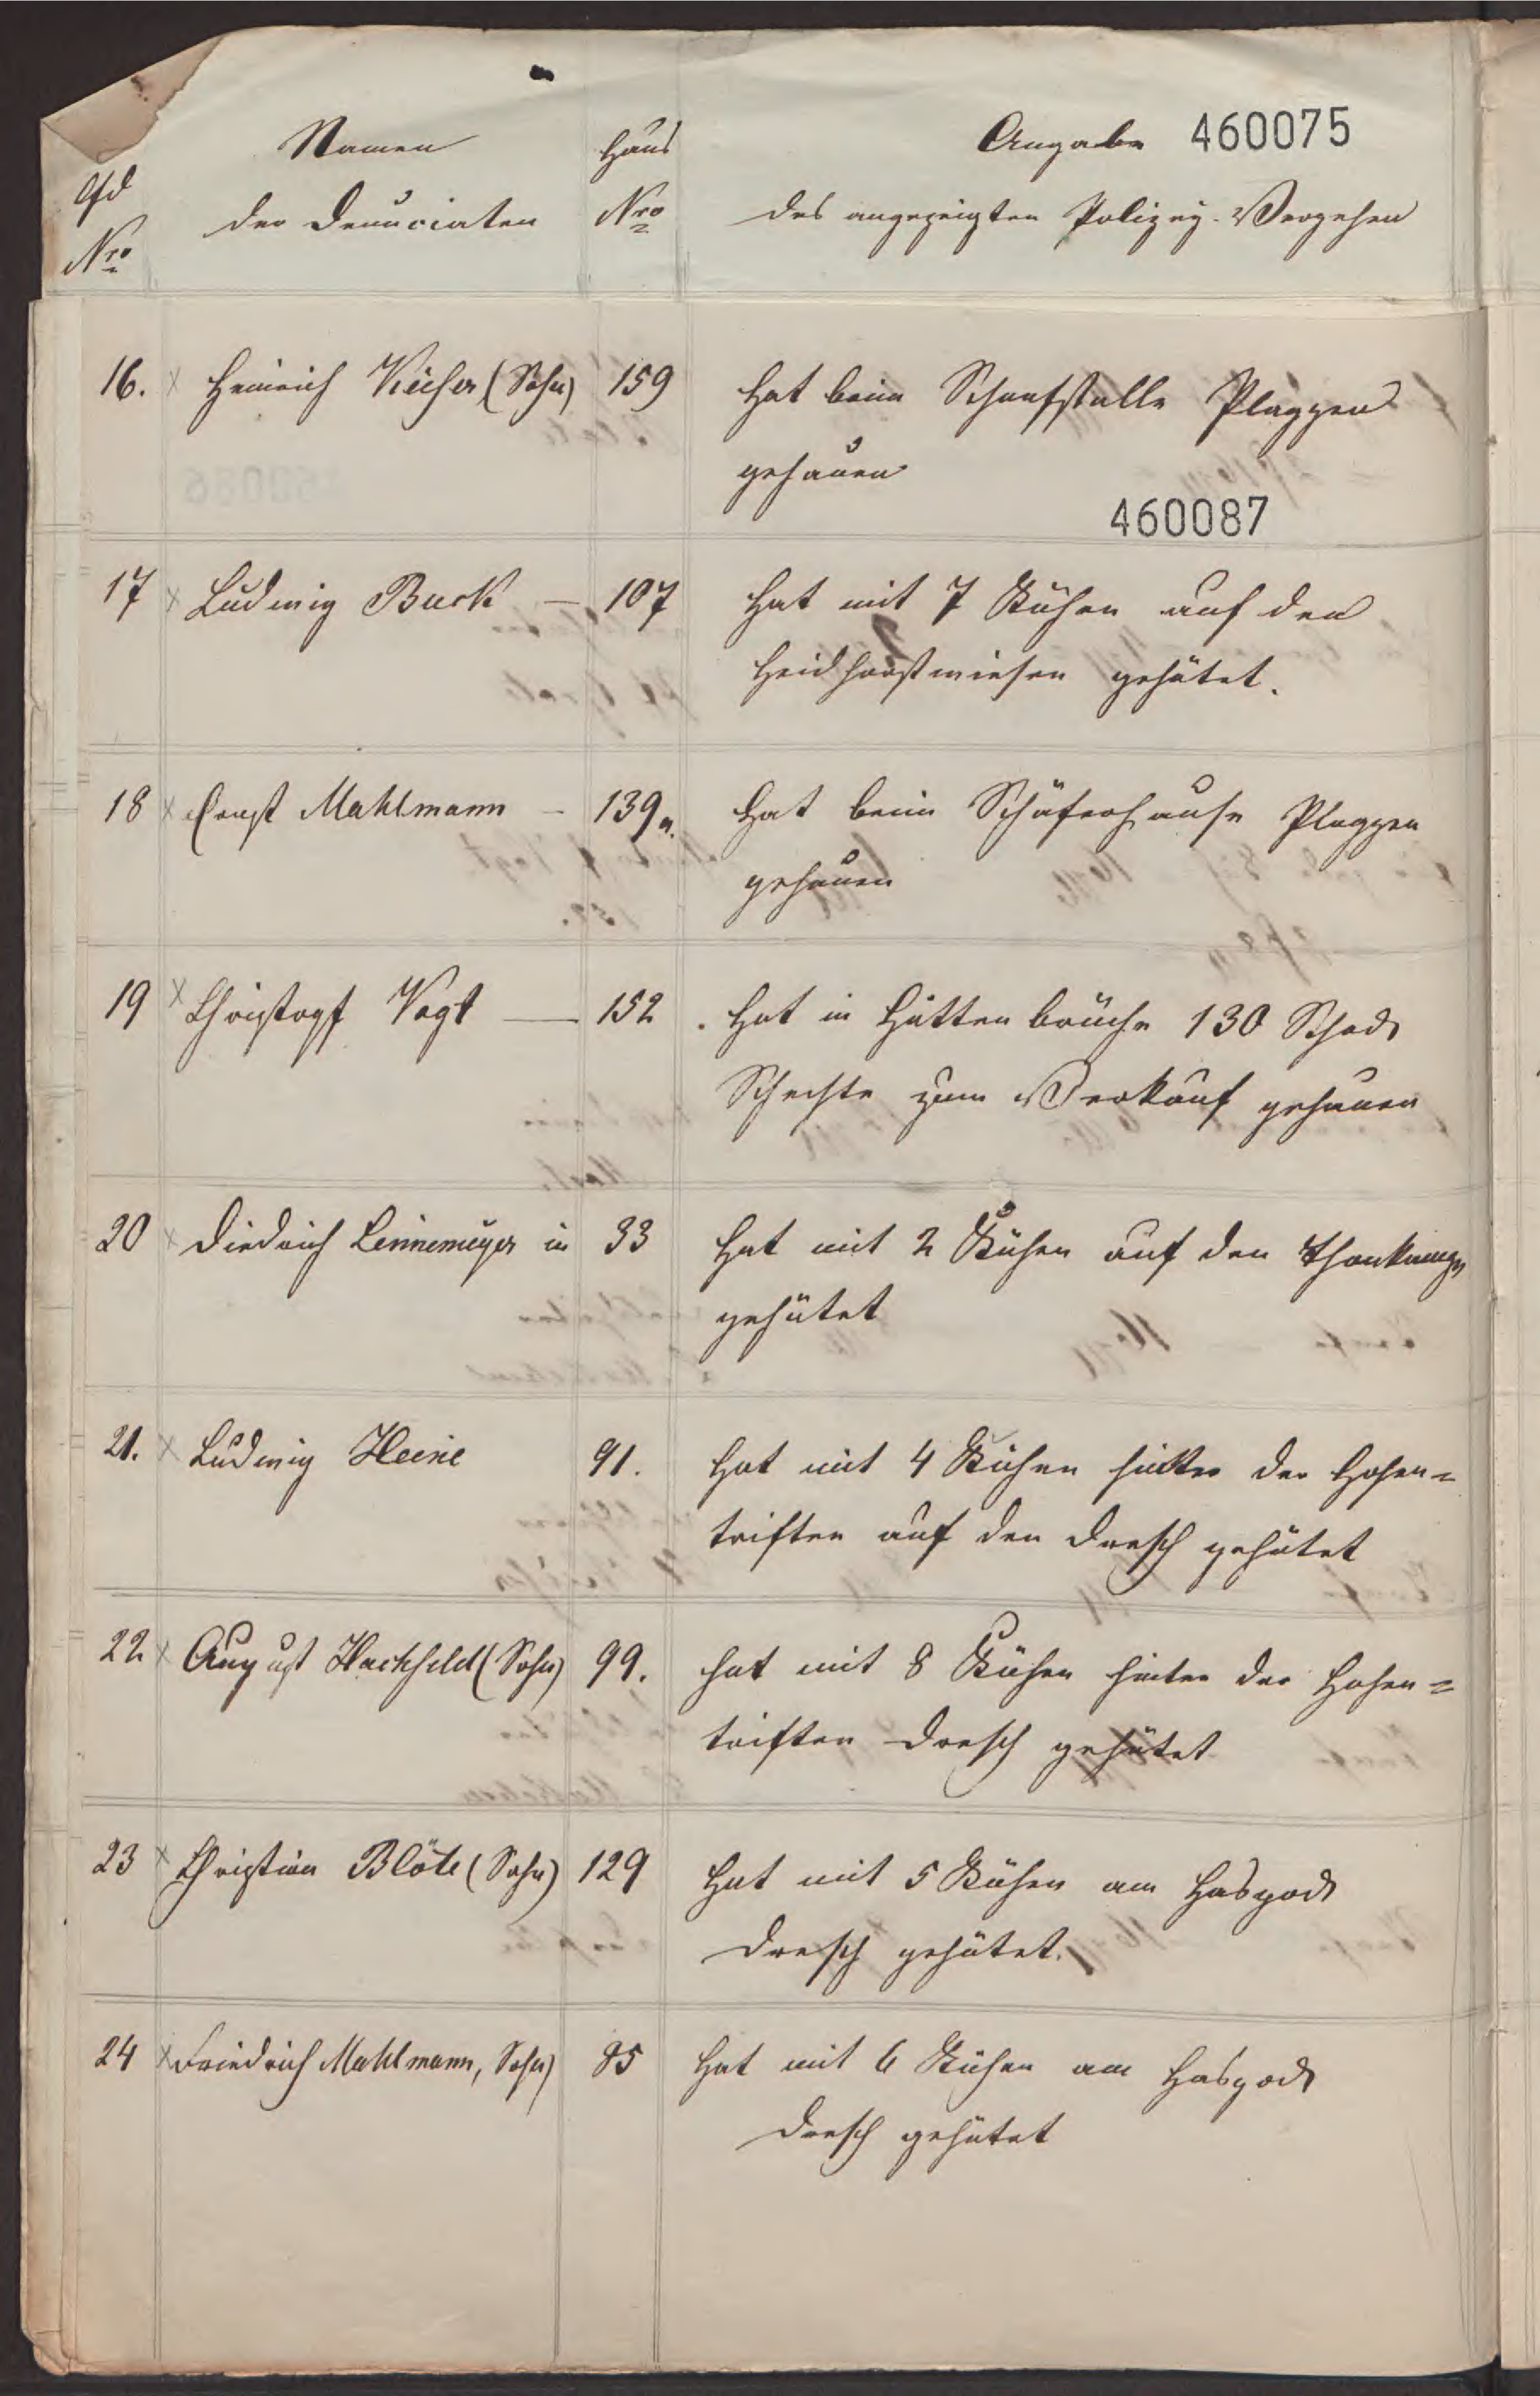 Namen Haus Angabe 460075
lfd
der Denunciaten Nro des angezeigten Polizey-Vergehen
Nro
16. x Heinrich Küker (Sohn) 159 Hat beim Schaafstalle Plaggen
gehauen
460087
17 x Ludwig Buck — 107 Hat mit 7 Kühen auf den
Heidhorstwiesen gehütet.
18 x Ernst Mahlmann – 139a. Hat beim Schäferhause Plaggen
gehauen
19 x Christoph Vogt — 152. Hat in Hüttenbruche 130 Schock
Schechte zum Verkauf gehauen
20 x Diedrich Lennemeyer in 33 Hat mit 2 Kühen auf den
gehütet
21. x Ludwig Heine 91. Hat mit 4 Kühen hinter der Hohen=
triften auf den Dresch gehütet
22 x August Hachfeld (Sohn) 99. hat mit 8 Kühen hinter der Hohen=
triften Dresch gehütet
23 x Christian Blöte (Sohn) 129 Hat mit 5 Kühen am
Dresch gehütet.
24 x Friedrich Mahlmann, Sohn) 85 Hat mit 6 Kühen am
Dresch gehütet